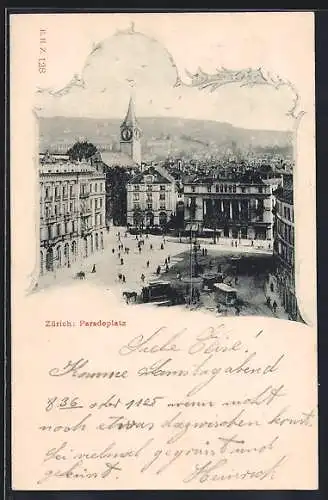 R. H. Z. 128
Zürich: Paradeplatz
Liebe Elise!
Komme Samstag abend
8 36 oder 11 25 wenn nicht
noch etwas dazwischen kommt.
Sei vielmal gegrüsst und
geküsst. Heinrich